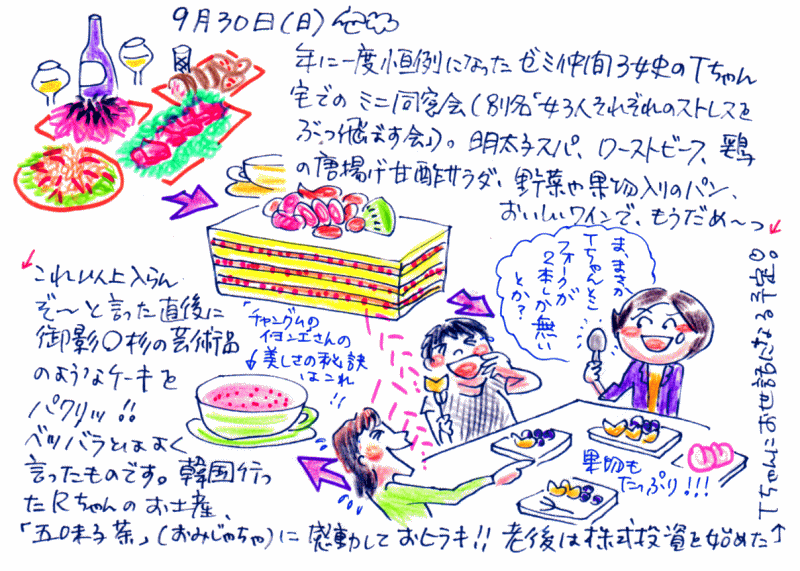 9月30日(日)
年に一度恒例になったゼミ仲間3女史のTちゃん
宅でのミニ同窓会(別名「女3人それぞれのストレスを
ぶっ飛ばす会」)。明太子スパ、ローストビーフ、鶏
の唐揚げ甘酢サラダ、野菜や果物入りのパン、
おいしいワインで、もうだめ〜っ
これ以上入らん
ぞ〜と言った直後に
御影〇杉の芸術品
のようなケーキを
パクリッ!!
ベツバラとはよく
言ったものです。韓国行っ
たRちゃんのお土産、
「五味子茶」(おみじゃちゃ)に感動しておヒラキ!!老後は株式投資を始めた
Tちゃんにお世話になる予定。
「チャングムの
イヨンエさんの
美しさの秘訣
はこれ
!!
ま、まさか
Tちゃんとこ
フォークが
2本しか無い
とか?
果物も
たっぷり!!!